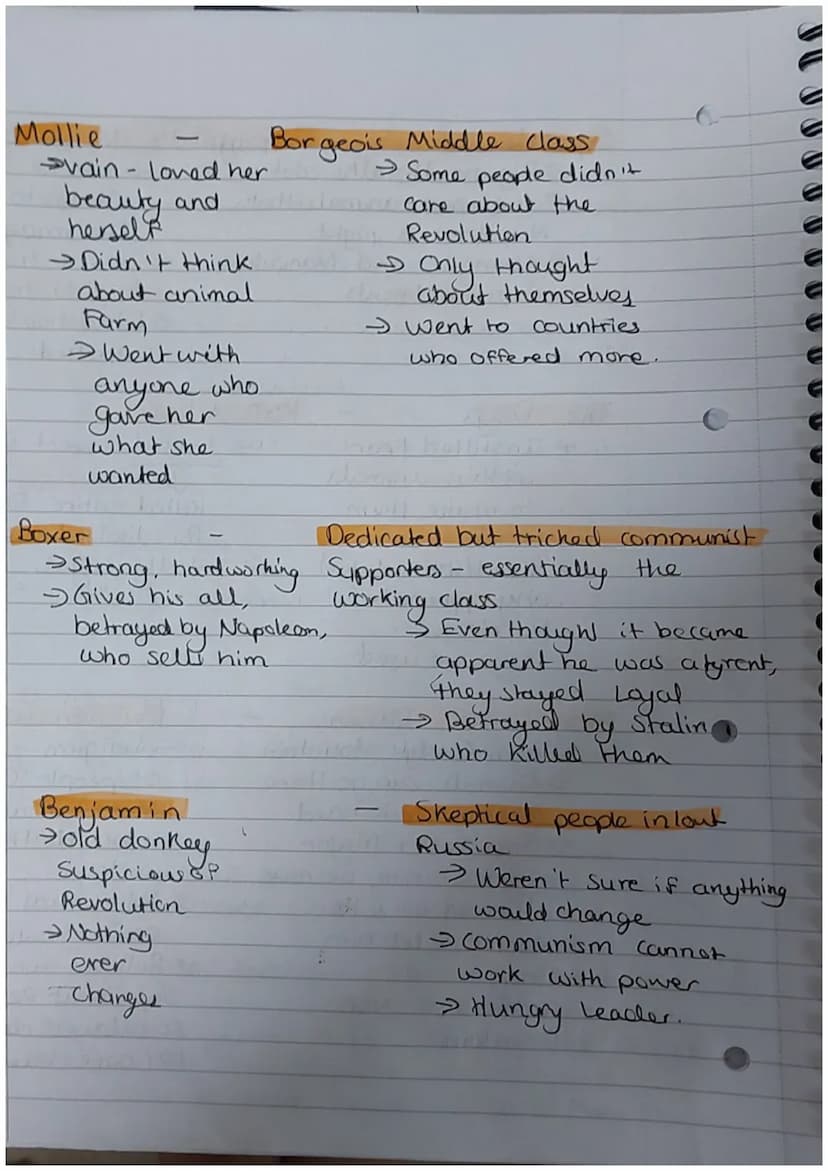 Mollie - Borgeois Middle Class
→ vain - loved her
beauty and
herself
→ Didn't think
about animal
Farm
→ Went with
anyone who
gave her
what she
wanted
→ Some people didn't
care about the
Revolution
→ Only thought
about themselves
→ Went to countries
who offered more.
Boxer - Dedicated but tricked communist
→ Strong, hardworking
→ Gives his all,
betrayed by Napoleon,
who sells him
Supporters - essentially the
working class
→ Even thought it became
apparent he was a tyrent,
they stayed Loyal
→ Betrayed by Stalin
who killed them
Benjamin - Skeptical people in/out
→ old donkey
Suspicious of
Revolution
→ Nothing
ever
changes
Russia
→ Weren't sure if anything
would change
→ Communism cannot
work with power
→ Hungry leader.